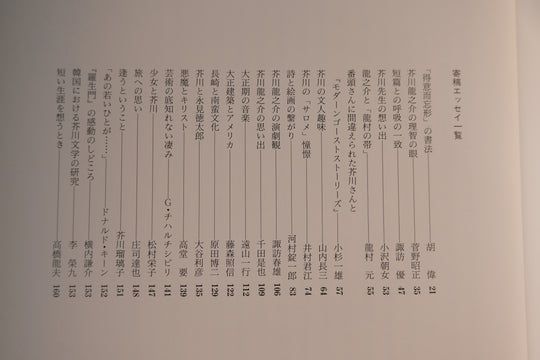 寄稿エッセイ一覧
「得意而忘形」の書法 胡 偉 21
芥川龍之介の理智の眼 菅野昭正 35
短篇との呼吸の一致 諏訪 優 47
芥川先生の想い出 小沢朝女 53
龍之介と「龍村の帯」 龍村 元 55
番頭さんに間違えられた芥川さんと
「モダーンゴーストストーリーズ」 小杉一雄 57
芥川の文人趣味 山内長三 64
芥川の「サロメ」憧憬 井村君江 74
詩と絵画の繋がり 河村錠一郎 83
芥川龍之介の演劇観 諏訪春雄 106
芥川龍之介の思い出 千田是也 109
大正期の音楽 遠山一行 112
大正建築とアメリカ 藤森照信 122
長崎と南蛮文化 原田博二 129
芥川と永見徳太郎 大谷利彦 135
悪魔とキリスト 高堂 要 139
芸術の底知れない凄み G・チハルチシビリ 141
少女と芥川 松村栄子 147
旅への思い 庄司達也 148
逢うということ 芥川瑠璃子 151
「あの若いひとが……」 ドナルド・キーン 152
『羅生門』の感動のしどころ 横内謙介 153
韓国における芥川文学の研究 李 栄九 153
短い生涯を想うとき 高橋龍夫 160